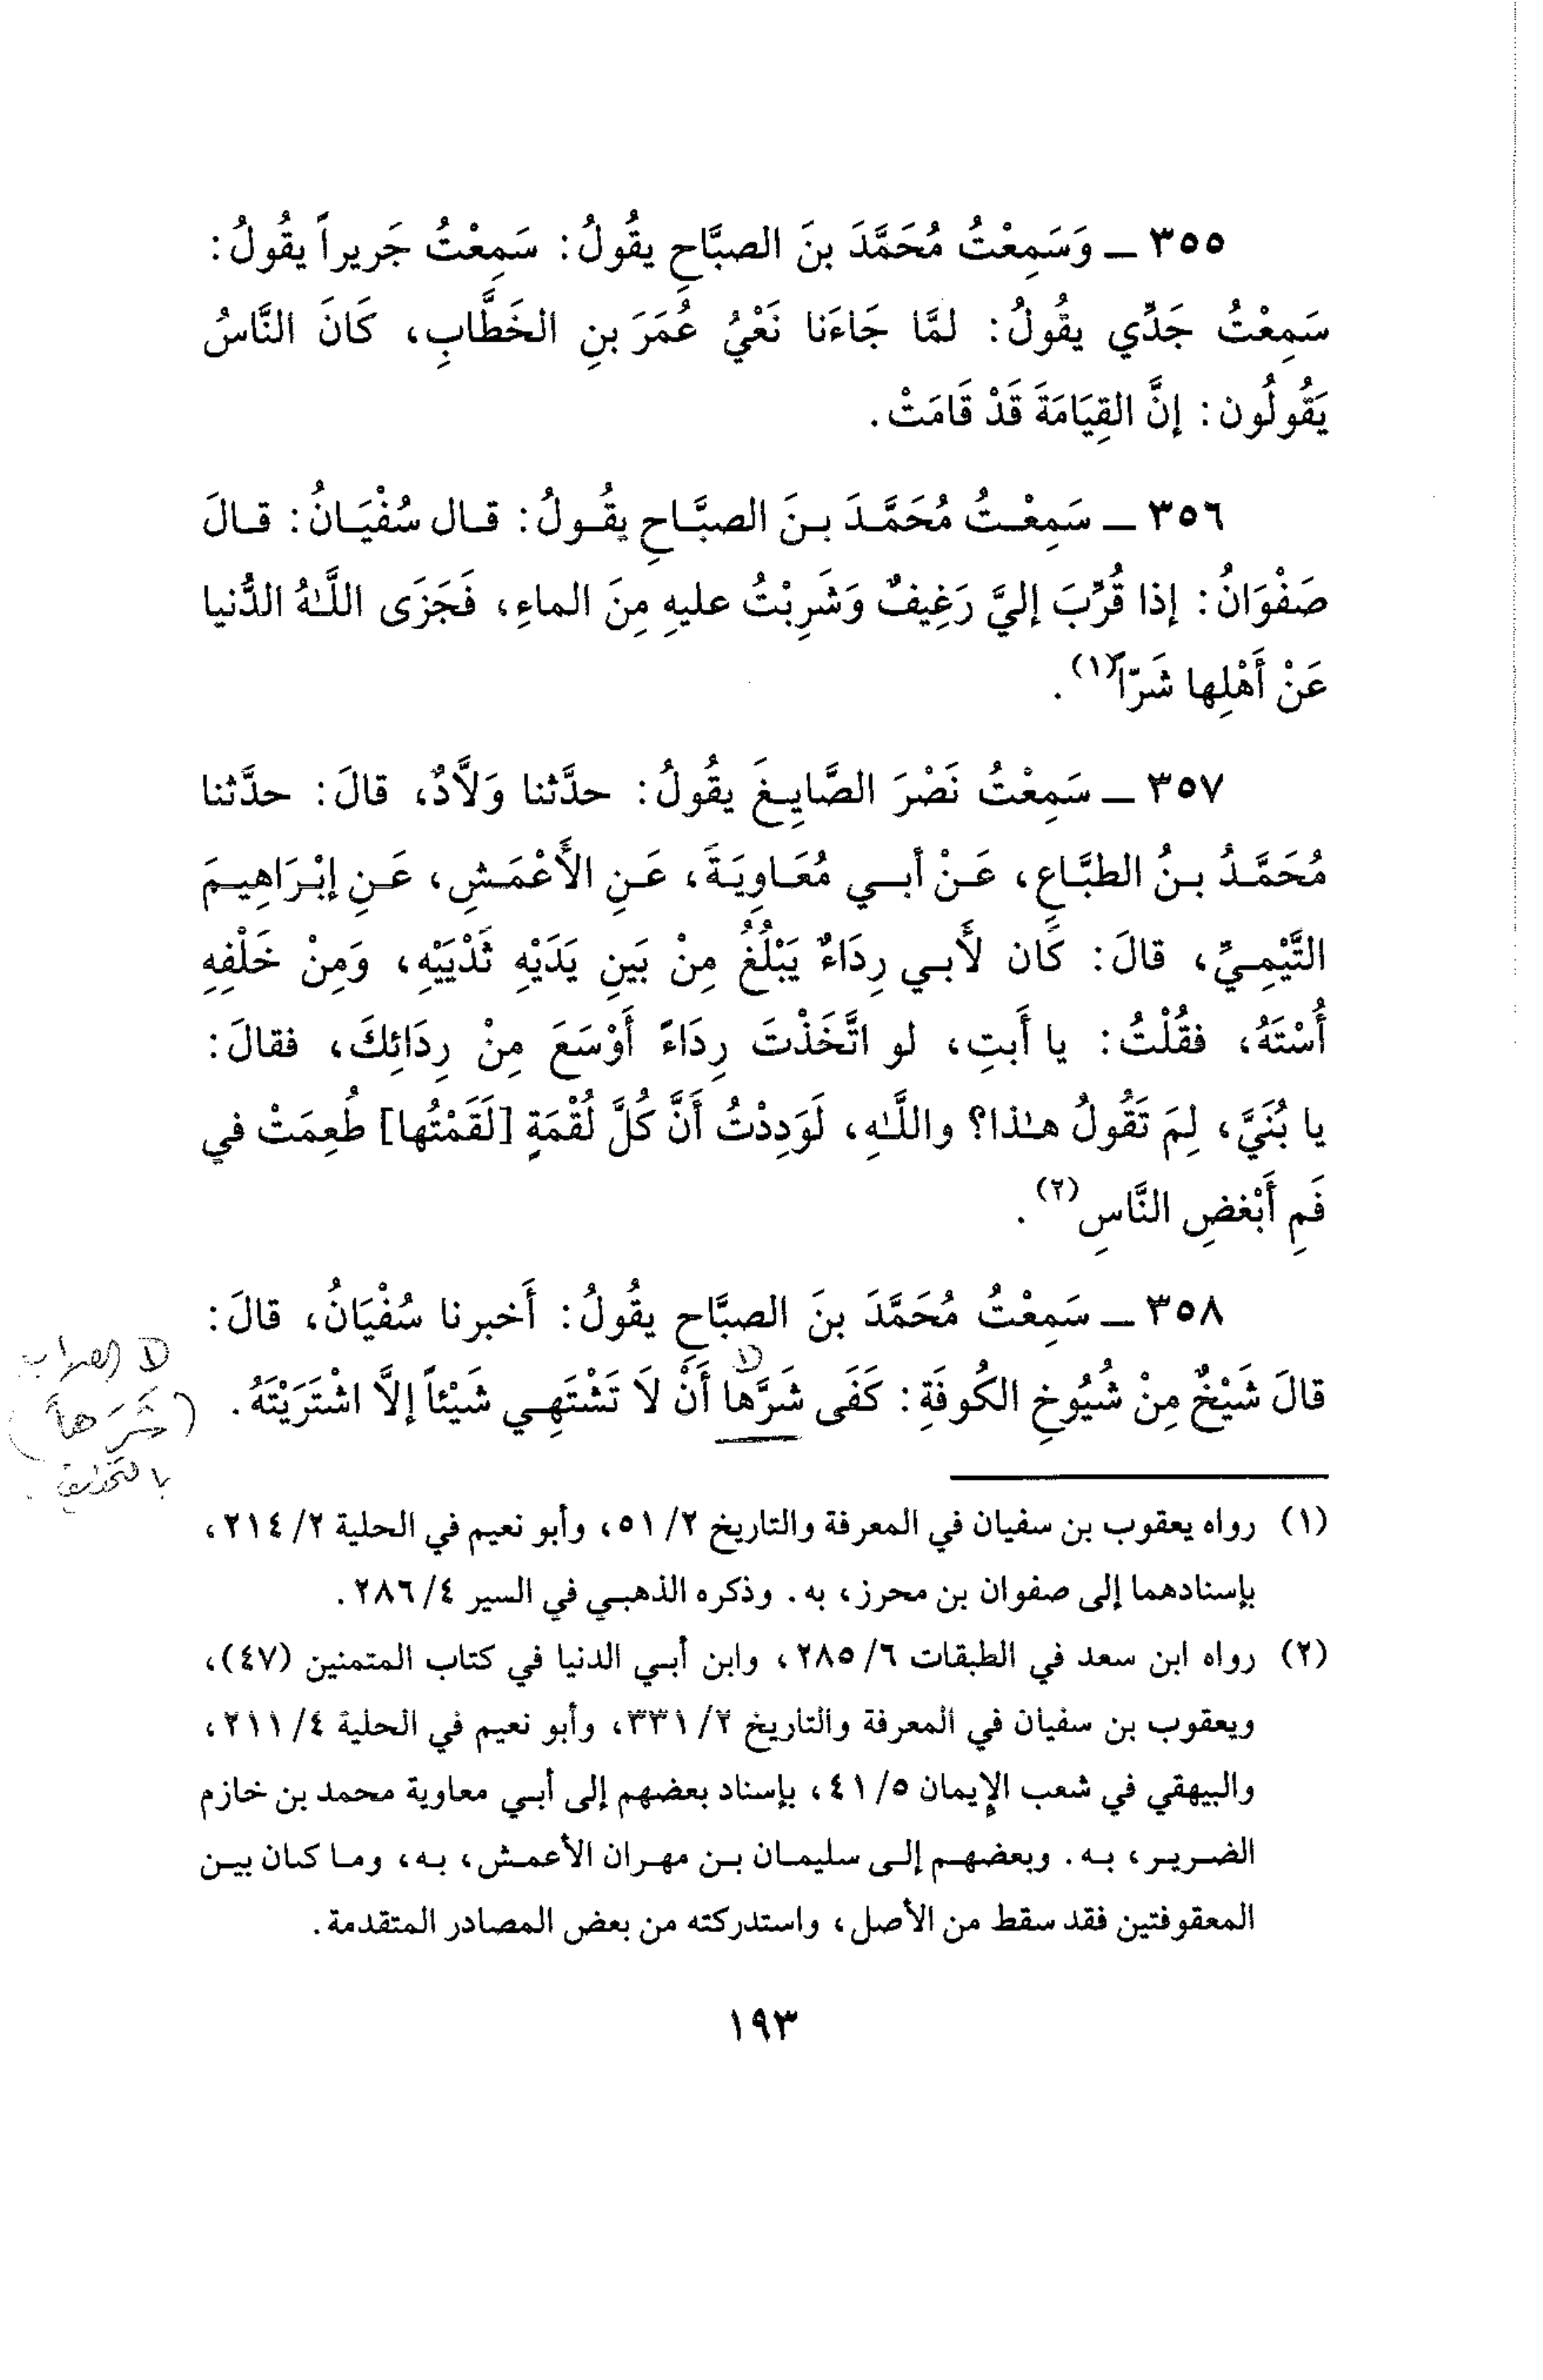 ٣٥٥ ــ وَسَمِعْتُ مُحَمَّدَ بنَ الصبَّاحِ يقُولُ: سَمِعْتُ جَريراً يقُولُ:
سَمِعْتُ جَدِّي يقُولُ: لمَّا جَاءَنا نَعْيُ عُمَرَ بنِ الخَطَّابِ، كَانَ النَّاسُ
يَقُولُون: إنَّ القِيَامَةَ قَدْ قَامَتْ.
٣٥٦ ــ سَمِعْتُ مُحَمَّدَ بنَ الصبَّاحِ يقُولُ: قال سُفْيَانُ: قالَ
صَفْوَانُ: إذا قُرِّبَ إليَّ رَغِيفٌ وَشَرِبْتُ عليهِ مِنَ الماءِ، فَجَزَى اللَّهُ الدُّنيا
عَنْ أَهْلِها شَرّاً(١).
٣٥٧ ــ سَمِعْتُ نَصْرَ الصَّايِغَ يقُولُ: حدَّثنا وَلَّادٌ، قالَ: حدَّثنا
مُحَمَّدُ بنُ الطبَّاعِ، عَنْ أبي مُعَاوِيَةَ، عَنِ الأَعْمَشِ، عَنِ إبْرَاهِيمَ
التَّيْمِيِّ، قالَ: كَان لأَبي رِدَاءٌ يَبْلُغُ مِنْ بَينِ يَدَيْهِ ثَدْيَيْهِ، وَمِنْ خَلْفِهِ
أُسْتَهُ، فقُلْتُ: يا أَبتِ، لو اتَّخَذْتَ رِدَاءً أَوْسَعَ مِنْ رِدَائِكَ، فقالَ:
يا بُنَيَّ، لِمَ تَقُولُ هٰذا؟ واللَّهِ، لَوَدِدْتُ أَنَّ كُلَّ لُقْمَةٍ [لَقَمْتُها] طُعِمَتْ في
فَمِ أَبْغضِ النَّاسِ(٢).
٣٥٨ ــ سَمِعْتُ مُحَمَّدَ بنَ الصبَّاحِ يقُولُ: أَخبرنا سُفْيَانُ، قالَ:
قالَ شَيْخٌ مِنْ شُيُوخِ الكُوفَةِ: كَفَى شَرَّها أَنْ لَا تَشْتَهِي شَيْئاً إلَّا اشْتَرَيْتَهُ.
(١) الصواب
(شَرَهاً)
بالتخفيف.
(١) رواه يعقوب بن سفيان في المعرفة والتاريخ ٢/ ٥١، وأبو نعيم في الحلية ٢/ ٢١٤،
بإسنادهما إلى صفوان بن محرز، به. وذكره الذهبي في السير ٤/ ٢٨٦.
(٢) رواه ابن سعد في الطبقات ٦/ ٢٨٥، وابن أبي الدنيا في كتاب المتمنين (٤٧)،
ويعقوب بن سفيان في المعرفة والتاريخ ٢/ ٣٣١، وأبو نعيم في الحلية ٤/ ٢١١،
والبيهقي في شعب الإيمان ٥/ ٤١، بإسناد بعضهم إلى أبي معاوية محمد بن خازم
الضرير، به. وبعضهم إلى سليمان بن مهران الأعمش، به، وما كان بين
المعقوفتين فقد سقط من الأصل، واستدركته من بعض المصادر المتقدمة.
١٩٣